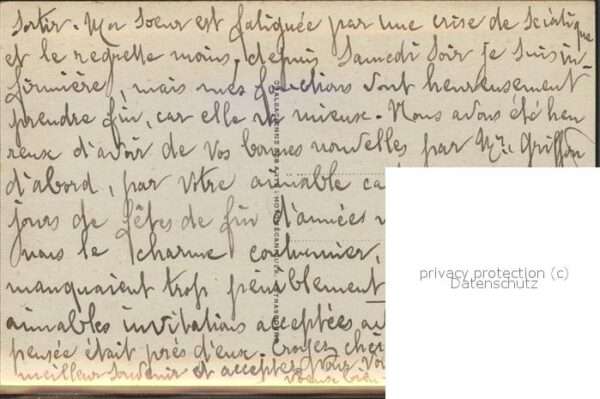 sortir. Ma Soeur est fatiguée par une crise de Sciatique
et le regrette moins, depuis Samedi Soir je suis in-
firmière, mais mes fonctions vont heureusement
prendre fin, car elle va mieux. Nous avons été heu
reux d'avoir de vos bonnes nouvelles par Mme Griffon
d'abord, par votre aimable
jours de fêtes de fin d'années
mais le charme coutumier,
manquaient trop péniblement
aimables invitations acceptées
pensée était près d'eux. Croyez
meilleur souvenir et acceptez pour
voeux bien
privacy protection (c)
Datenschutz